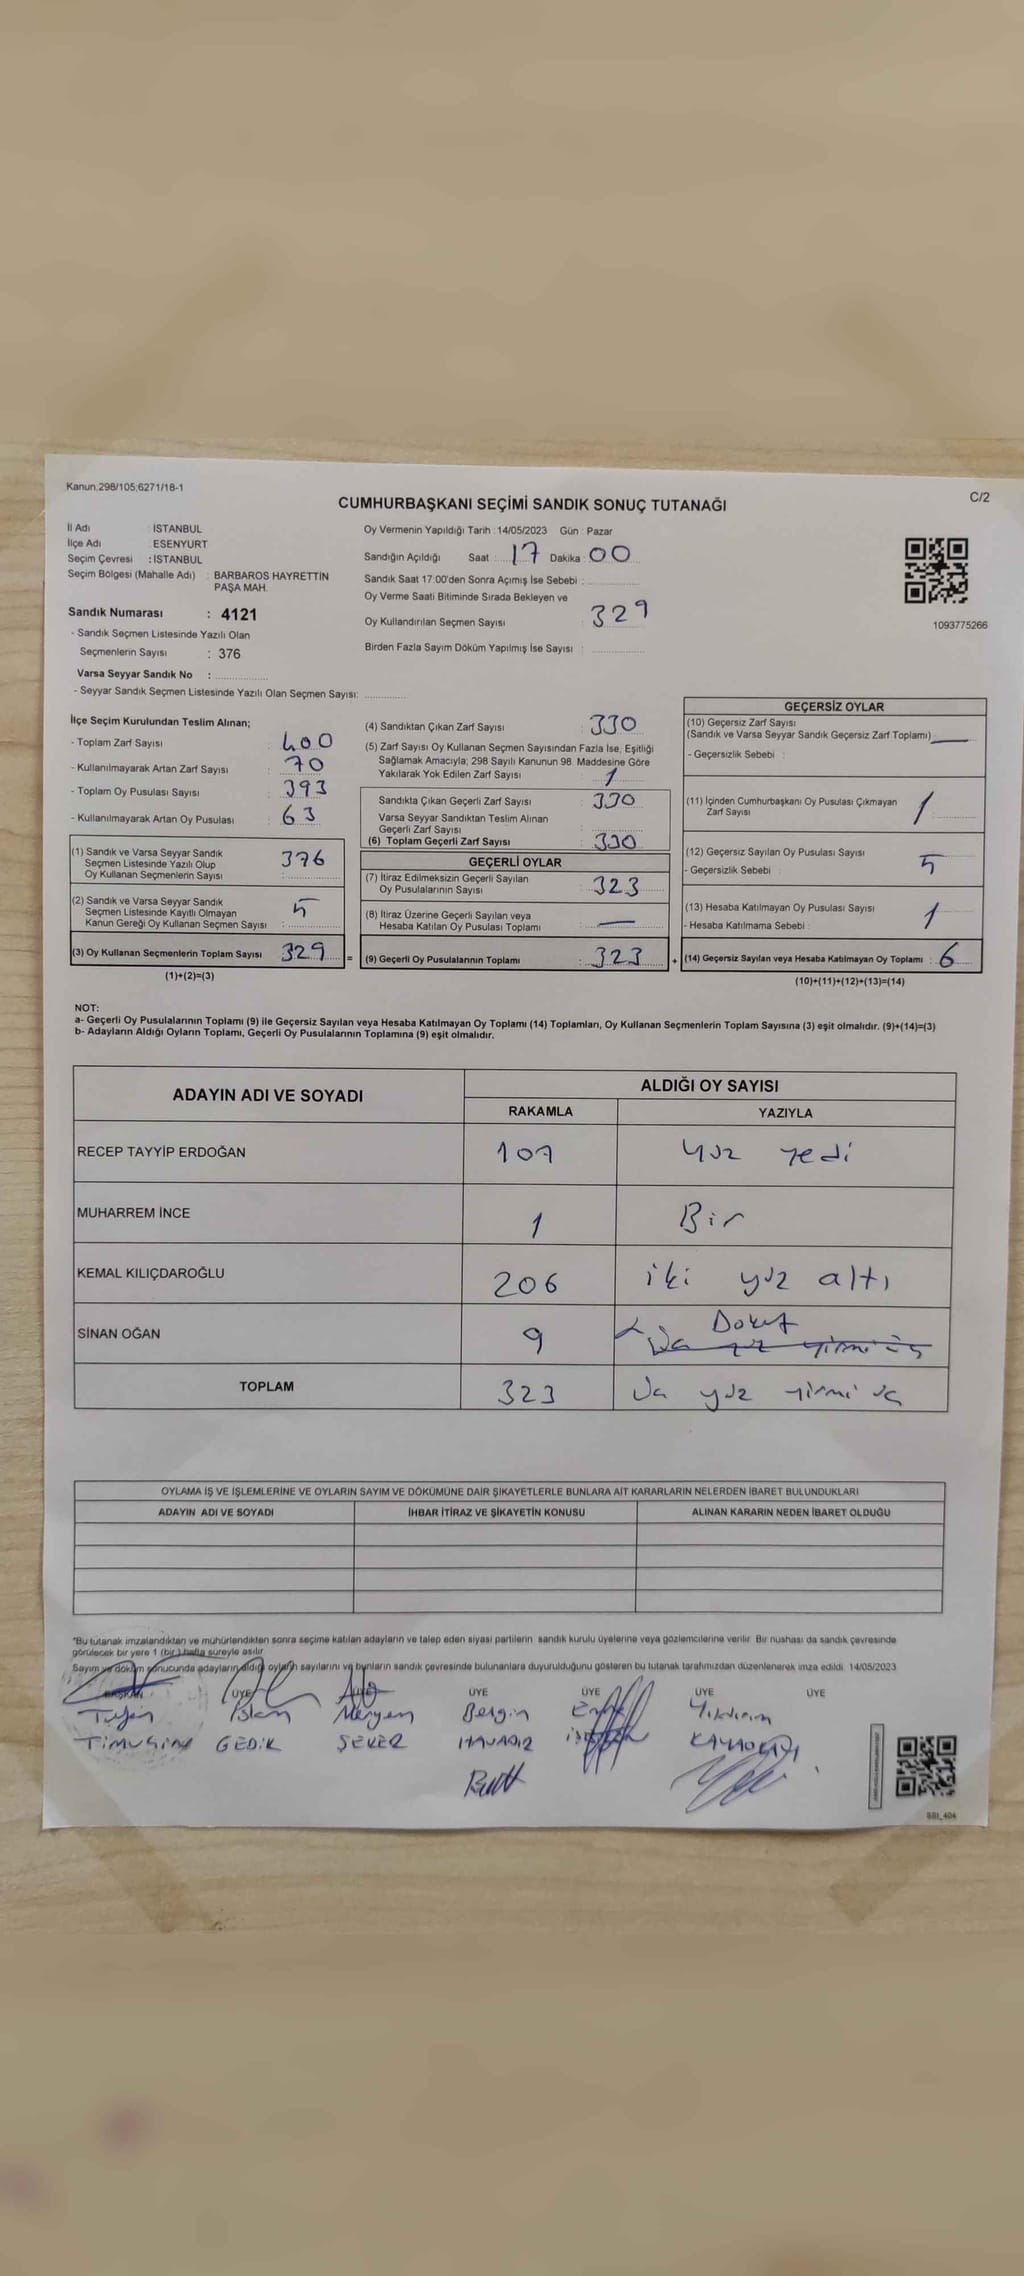 Kanun;298/105;6271/18-1
C/2
CUMHURBAŞKANI SEÇİMİ SANDIK SONUÇ TUTANAĞI
İl Adı : İSTANBUL
İlçe Adı : ESENYURT
Seçim Çevresi : İSTANBUL
Seçim Bölgesi (Mahalle Adı) : BARBAROS HAYRETTİN
PAŞA MAH.
Sandık Numarası : 4121
- Sandık Seçmen Listesinde Yazılı Olan
Seçmenlerin Sayısı : 376
Varsa Seyyar Sandık No :
- Seyyar Sandık Seçmen Listesinde Yazılı Olan Seçmen Sayısı:
Oy Vermenin Yapıldığı Tarih : 14/05/2023 Gün : Pazar
Sandığın Açıldığı Saat : 17 Dakika : 00
Sandık Saat 17:00'den Sonra Açımış İse Sebebi :
Oy Verme Saati Bitiminde Sırada Bekleyen ve
Oy Kullandırılan Seçmen Sayısı : 329
Birden Fazla Sayım Döküm Yapılmış İse Sayısı :
1093775266
İlçe Seçim Kurulundan Teslim Alınan;
- Toplam Zarf Sayısı : 400
- Kullanılmayarak Artan Zarf Sayısı : 70
- Toplam Oy Pusulası Sayısı : 393
- Kullanılmayarak Artan Oy Pusulası : 63
(1) Sandık ve Varsa Seyyar Sandık
Seçmen Listesinde Yazılı Olup
Oy Kullanan Seçmenlerin Sayısı : 376
(2) Sandık ve Varsa Seyyar Sandık
Seçmen Listesinde Kayıtlı Olmayan
Kanun Gereği Oy Kullanan Seçmen Sayısı : 5
(3) Oy Kullanan Seçmenlerin Toplam Sayısı : 329 =
(1)+(2)=(3)
(4) Sandıktan Çıkan Zarf Sayısı : 330
(5) Zarf Sayısı Oy Kullanan Seçmen Sayısından Fazla İse, Eşitliği
Sağlamak Amacıyla; 298 Sayılı Kanunun 98. Maddesine Göre
Yakılarak Yok Edilen Zarf Sayısı : 1
Sandıkta Çıkan Geçerli Zarf Sayısı : 330
Varsa Seyyar Sandıktan Teslim Alınan
Geçerli Zarf Sayısı :
(6) Toplam Geçerli Zarf Sayısı : 330
GEÇERLİ OYLAR
(7) İtiraz Edilmeksizin Geçerli Sayılan
Oy Pusulalarının Sayısı : 323
(8) İtiraz Üzerine Geçerli Sayılan veya
Hesaba Katılan Oy Pusulası Toplamı : —
(9) Geçerli Oy Pusulalarının Toplamı : 323 +
GEÇERSİZ OYLAR
(10) Geçersiz Zarf Sayısı
(Sandık ve Varsa Seyyar Sandık Geçersiz Zarf Toplamı) : —
- Geçersizlik Sebebi :
(11) İçinden Cumhurbaşkanı Oy Pusulası Çıkmayan
Zarf Sayısı : 1
(12) Geçersiz Sayılan Oy Pusulası Sayısı : 5
- Geçersizlik Sebebi :
(13) Hesaba Katılmayan Oy Pusulası Sayısı : 1
- Hesaba Katılmama Sebebi :
(14) Geçersiz Sayılan veya Hesaba Katılmayan Oy Toplamı : 6
(10)+(11)+(12)+(13)=(14)
NOT:
a- Geçerli Oy Pusulalarının Toplamı (9) ile Geçersiz Sayılan veya Hesaba Katılmayan Oy Toplamı (14) Toplamları, Oy Kullanan Seçmenlerin Toplam Sayısına (3) eşit olmalıdır. (9)+(14)=(3)
b- Adayların Aldığı Oyların Toplamı, Geçerli Oy Pusulalarının Toplamına (9) eşit olmalıdır.
ADAYIN ADI VE SOYADI ALDIĞI OY SAYISI
RAKAMLA YAZIYLA
RECEP TAYYİP ERDOĞAN 107 Yüz yedi
MUHARREM İNCE 1 Bir
KEMAL KILIÇDAROĞLU 206 iki yüz altı
SİNAN OĞAN 9 Dokuz
TOPLAM 323 Üç yüz yirmi üç
OYLAMA İŞ VE İŞLEMLERİNE VE OYLARIN SAYIM VE DÖKÜMÜNE DAİR ŞİKAYETLERLE BUNLARA AİT KARARLARIN NELERDEN İBARET BULUNDUKLARI
ADAYIN ADI VE SOYADI İHBAR İTİRAZ VE ŞİKAYETİN KONUSU ALINAN KARARIN NEDEN İBARET OLDUĞU
*Bu tutanak imzalandıktan ve mühürlendikten sonra seçime katılan adayların ve talep eden siyasi partilerin sandık kurulu üyelerine veya gözlemcilerine verilir. Bir nushası da sandık çevresinde
görülecek bir yere 1 (bir ) hafta süreyle asılır
Sayım ve döküm sonucunda adayların aldığı oyların sayılarını ve bunların sandık çevresinde bulunanlara duyurulduğunu gösteren bu tutanak tarafımızdan düzenlenerek imza edildi. 14/05/2023
BAŞKAN ÜYE ÜYE ÜYE ÜYE ÜYE ÜYE
İslam Meryem Bergin Yıldırım
GEDİK ŞEKER
SSI_404